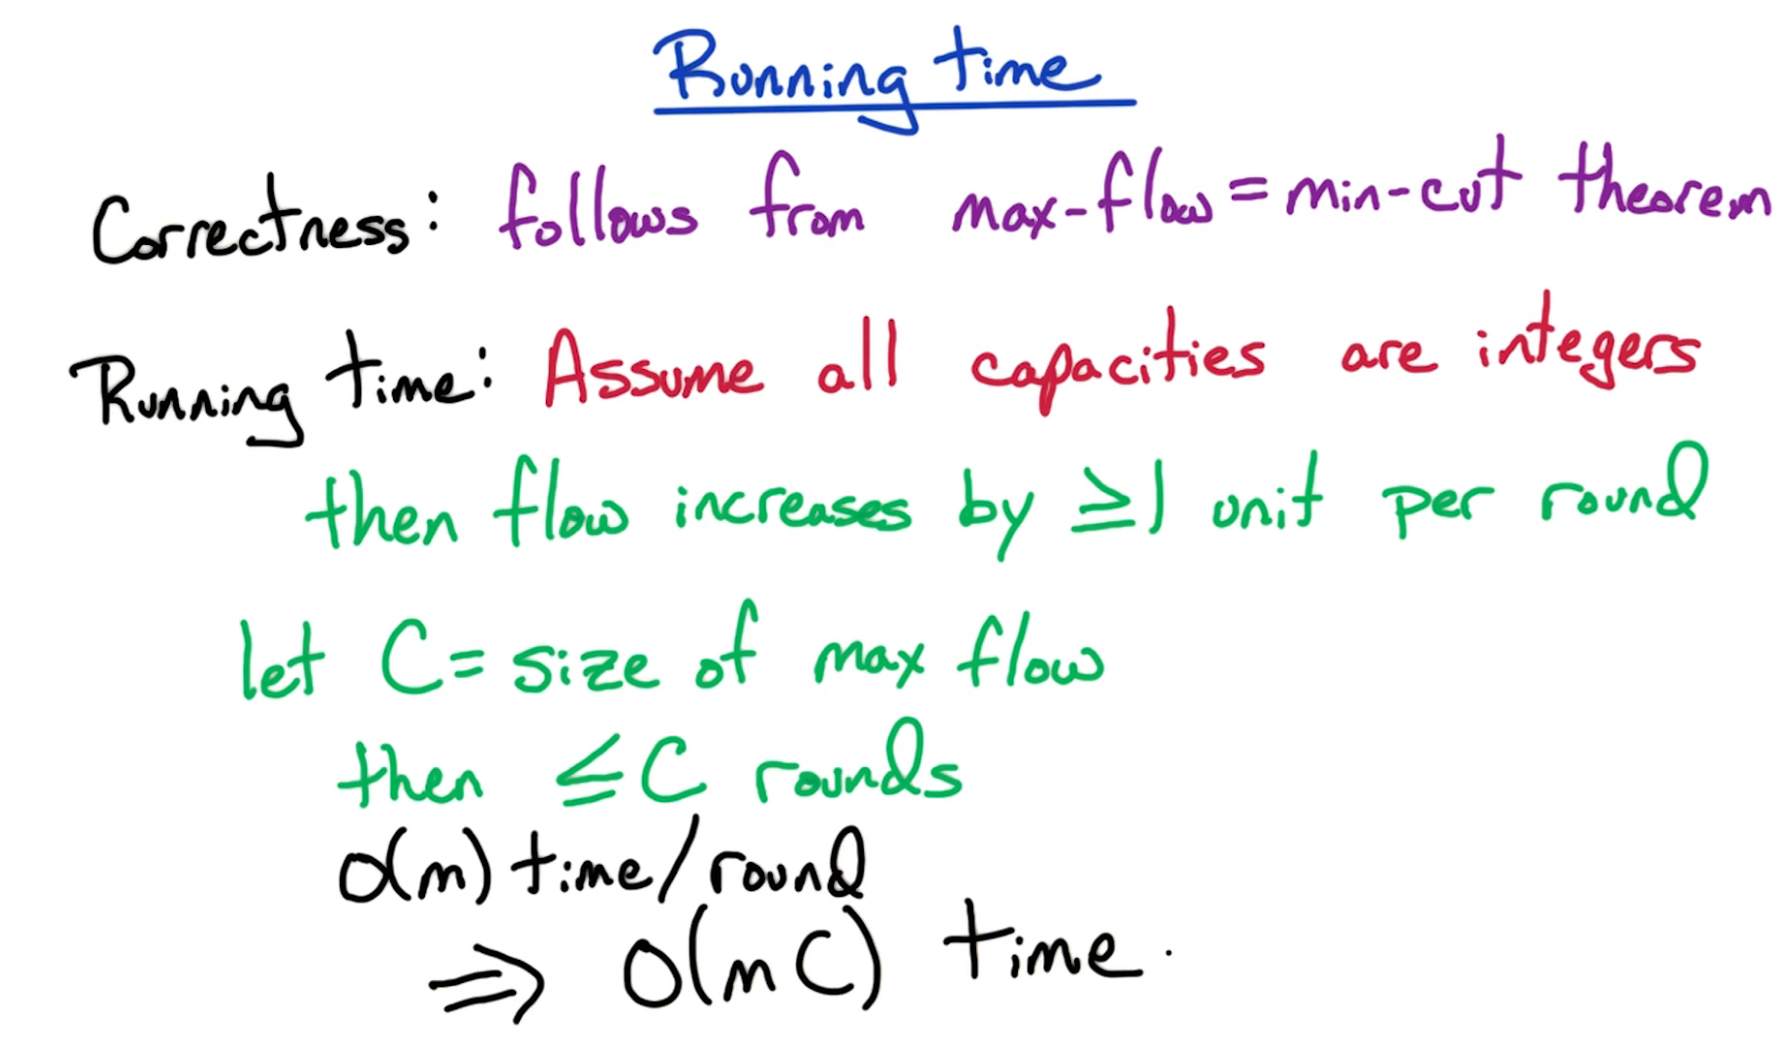 Running time
Correctness: follows from max-flow = min-cut theorem
Running time: Assume all capacities are integers
then flow increases by ≥1 unit per round
let C = size of max flow
then ≤ C rounds
O(m) time/round
⇒ O(mC) time.